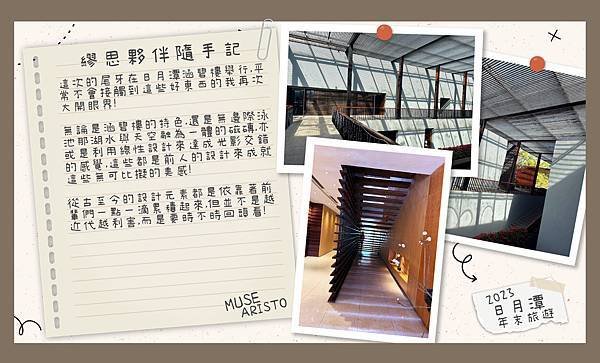 繆思夥伴隨手記
這次的尾牙在日月潭涵碧樓舉行,平
常不會接觸到這些好東西的我再次
大開眼界!
無論是涵碧樓的特色,還是無邊際泳
池那湖水與天空融為一體的磁磚,亦
或是利用線性設計來達成光影交錯
的感覺,這些都是前人的設計來成就
這些無可比擬的美感!
從古至今的設計元素都是依靠著前
輩們一點一滴累積起來,但並不是越
近代越利害,而是要時不時回頭看!
MUSE
ARISTO
2023
日月潭
年末旅遊